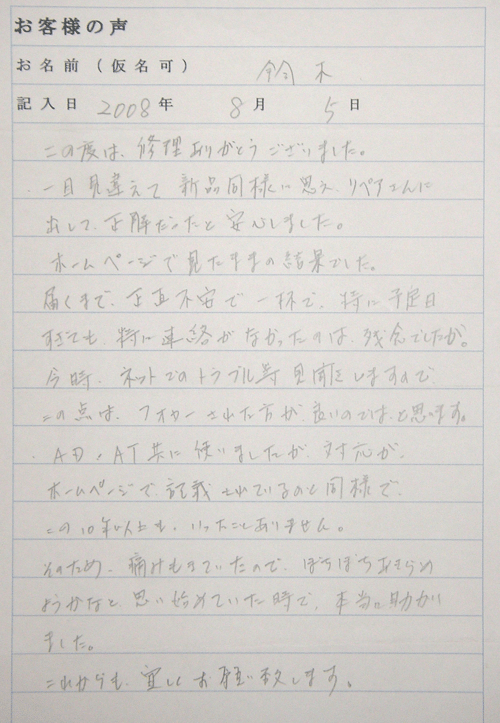 お客様の声
お名前（仮名可） 鈴木
記入日 2008年 8月 5日
この度は、修理ありがとうございました。
一目見違えて 新品同様に思え、リペアさんに
出して、正解だったと安心しました。
ホームページで見たままの結果でした。
届くまで、正直不安で一杯で、特に予定日
すぎても、特に連絡がなかったのは、残念でしたが。
今時、ネットでのトラブル等 見聞きしますので
この点は、フォローされた方が、良いのでは、と思います。
共に 使いましたが、対応が、
ホームページで、記載されているのと同様で、
この10年以上も、いったことありません。
そのため、痛みもきていたので、ぼちぼちあきらめ
ようかなと 思い始めていた時で、本当に助かり
ました。
これからも、宜しくお願い致します。